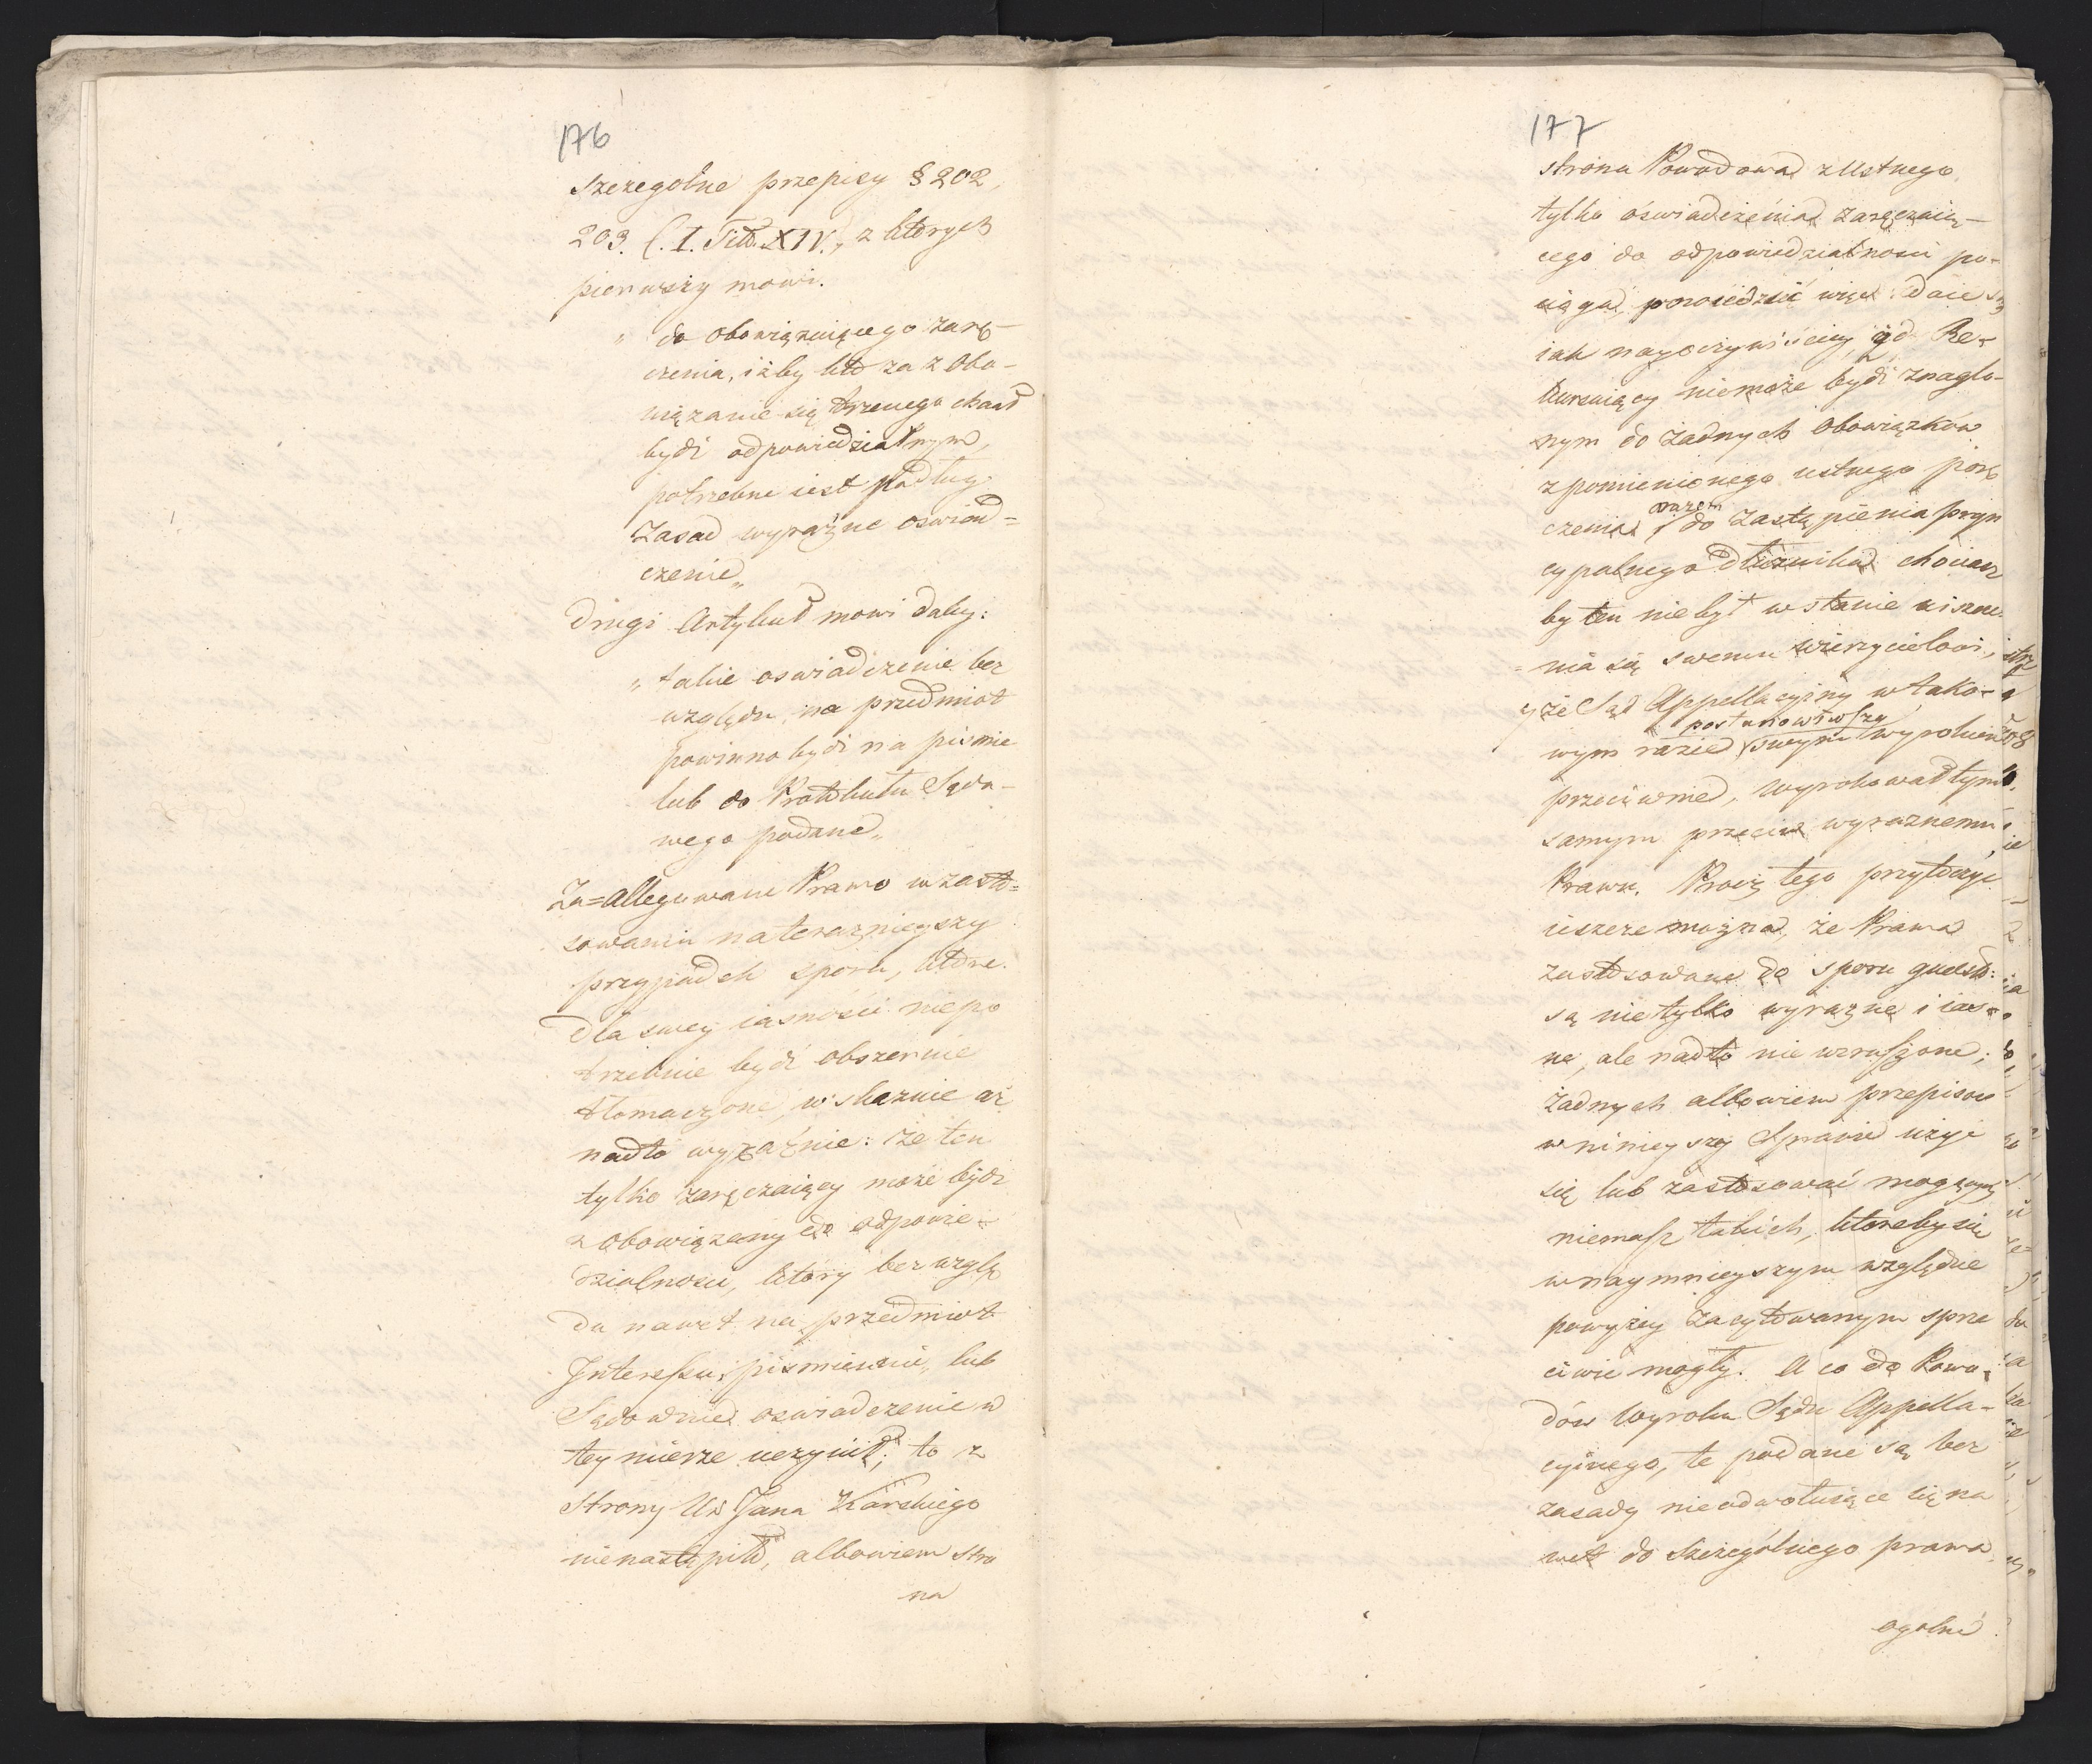 176
szczegolne przepisy § 202,
203. C. I. Titd. XIV., z ktorych
pierwszy mowi.
„ do obowięzuiącego zarę-
czenia, iżby kto za z obo-
wiązanie się trzeciego chciał
bydź odpowiedzialnym,
potrzebne iest podług
Zasad wyraźne oswiad=
czenie„
drugi Artykuł mowi daley:
„ takie oswiadczenie bez
względu na przedmiot
powinno bydź na pismie
lub do Protokułu Sądo-
wego podane„
Za=allegowane Prawo w zasto=
sowaniu nateraznieyszy
przypadek sporu, które
dla swey iasności niepo
trzebuie bydź obszernie
tłomaczone, wskazuie aż
nadto wyraźnie: że ten
tylko zaręczaiący może bydź
zobowiązany do odpowie-
dzialności, który bez wzglę
du nawet na przedmiot
Interessu, pismiennie, lub
Sądownie oswiadczenie w
tey mierze uczynił; to z
strony Ur Jana Karskiego
nienastąpiło, albowiem stro
na
177
strona Powodowa z ustnego
tylko oświadczenia zaręczaią-
cego do odpowiedzialności po-
ciąga, powiedzieć więc daie się
iak nayoczywiściey, że Re-
kursuiący niemoże bydź znaglo-
nym do żadnych obowiązków
z pomienionego ustnego porę
czenia, do Zastąpienia pryn
razem
cypalnego dłużnika chociaż
by ten nie był w stanie uiszcze
=nia się swemu wierzycielowi,
y że Sąd Appellacyiny w tako-
postanowiwszy
wym razie swym wyrokiem
przeciwnie, wyrokował tym
samym przeciw wyraznemu
Prawu. Procz tego przytoczyć
ieszcze można, że Prawa
zastosowane do sporu quest:
są nie tylko wyrazne i ias-
ne, ale nadto nie wzruszone;
żadnych albowiem przepisow
w ninieyszey Sprawie użyć
się lub zastosować mogących
niemasz takich, któreby się
w naymnieyszym względzie
powyżey Zacytowanym sprze
ciwić mogły. A co do Powo-
dów Wyroku Sądu Appella-
cyinego, te podane są bez
zasady nieodwołuiące się na
wet do szczególnego prawa,
ogolne